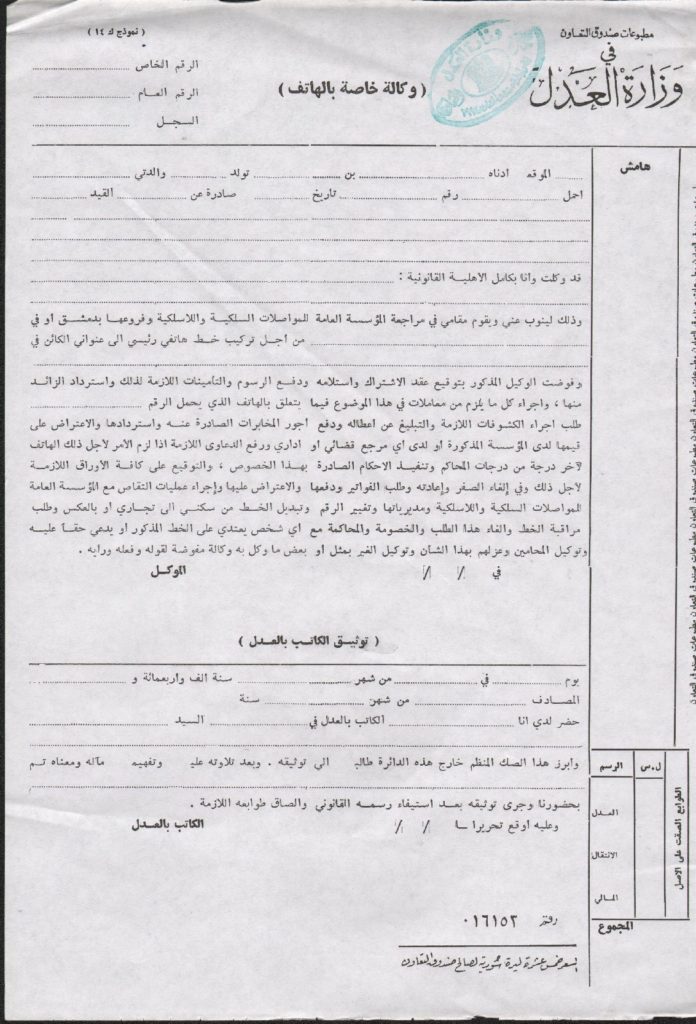 مطبوعات صندوق التعاون
في
وزارة العدل
( نموذج ك ١٤ )
( وكالة خاصة بالهاتف )
الرقم الخاص
الرقم العام
السجل
هامش
الموقع ادناه بن تولد والدتي
احمل رقم تاريخ صادرة عن القيد
قد وكلت وانا بكامل الاهلية القانونية :
وذلك لينوب عني ويقوم مقامي في مراجعة المؤسسة العامة للمواصلات السلكية واللاسلكية وفروعها بدمشق او في
من اجل تركيب خط هاتفي رئيسي الى عنواني الكائن في
وفوضت الوكيل المذكور بتوقيع عقد الاشتراك واستلامه ودفع الرسوم والتأمينات اللازمة لذلك واسترداد الزائد
منها ، واجراء كل ما يلزم من معاملات في هذا الموضوع فيما يتعلق بالهاتف الذي يحمل الرقم
طلب اجراء الكشوفات اللازمة والتبليغ عن اعطاله ودفع أجور المخابرات الصادرة عنه واستردادها والاعتراض على
قيمها لدى المؤسسة المذكورة او لدى اي مرجع قضائي او اداري ورفع الدعاوى اللازمة اذا لزم الأمر لأجل ذلك الهاتف
لآخر درجة من درجات المحاكم وتنفيذ الاحكام الصادرة بهذا الخصوص ، والتوقيع على كافة الأوراق اللازمة
لأجل ذلك وفي إلغاء الصفر وإعادته وطلب الفواتير ودفعها والاعتراض عليها وإجراء عمليات التقاص مع المؤسسة العامة
للمواصلات السلكية واللاسلكية ومديرياتها وتغيير الرقم وتبديل الخط من سكني الى تجاري او بالعكس وطلب
مراقبة الخط والغاء هذا الطلب والخصومة والمحاكمة مع اي شخص يعتدي على الخط المذكور او يدعي حقاً عليه
وتوكيل المحامين وعزلهم بهذا الشأن وتوكيل الغير بمثل او بعض ما وكل به وكالة مفوضة لقوله وفعله ورأيه .
في / / الموكل
( توثيق الكاتب بالعدل )
يوم في من شهر سنة الف واربعمائة و
المصادف من شهر سنة
حضر لدي انا الكاتب بالعدل في السيد
وابرز هذا الصك المنظم خارج هذه الدائرة طالب الي توثيقه . وبعد تلاوته علي وتفهيم مآله ومعناه تم
بحضورنا وجرى توثيقه بعد استيفاء رسمه القانوني والصاق طوابعه اللازمة .
وعليه اوقع تحريرا / / الكاتب بالعدل
ل.س الرسم
العدل
الانتقال
المالي
المجموع
الطوابع الصقت على الاصل
رقم ٠١٦١٥٢
السعر خمس عشرة ليرة سورية لصالح صندوق التعاون